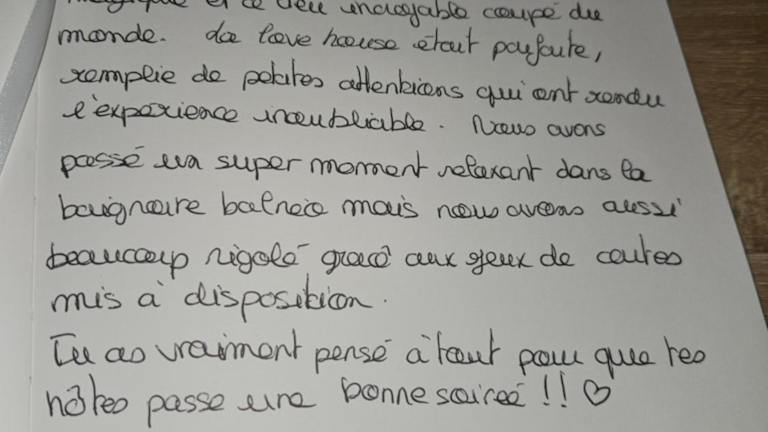 magique et ce lieu incroyable coupé du
monde. La love house était parfaite,
remplie de petites attentions qui ont rendu
l'expérience inoubliable. Nous avons
passé un super moment relaxant dans la
baignoire balnéo mais nous avons aussi
beaucoup rigolé gracê aux jeux de cartes
mis à disposition.
Tu as vraiment pensé à tout pour que tes
hôtes passe une bonne soirée !! ♡